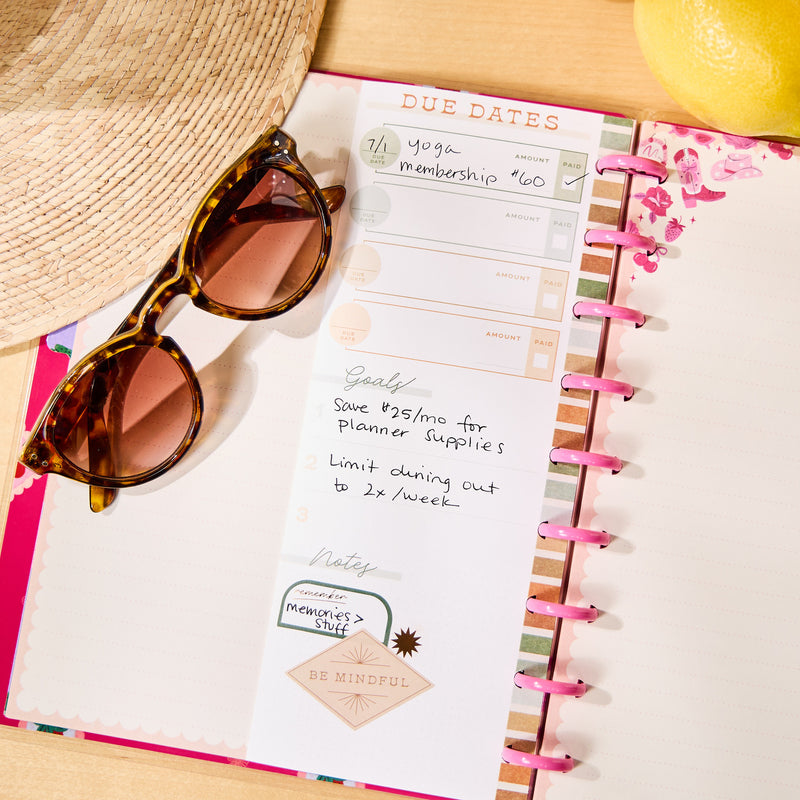 DUE DATES
7/1
DUE DATE
yoga
membership $60
AMOUNT
PAID
✓
DUE DATE
AMOUNT
PAID
DUE DATE
AMOUNT
PAID
DUE DATE
AMOUNT
PAID
Goals
1 Save $25/mo for
planner supplies
2 Limit dining out
to 2x/week
3
Notes
remember
memories >
stuff
BE MINDFUL